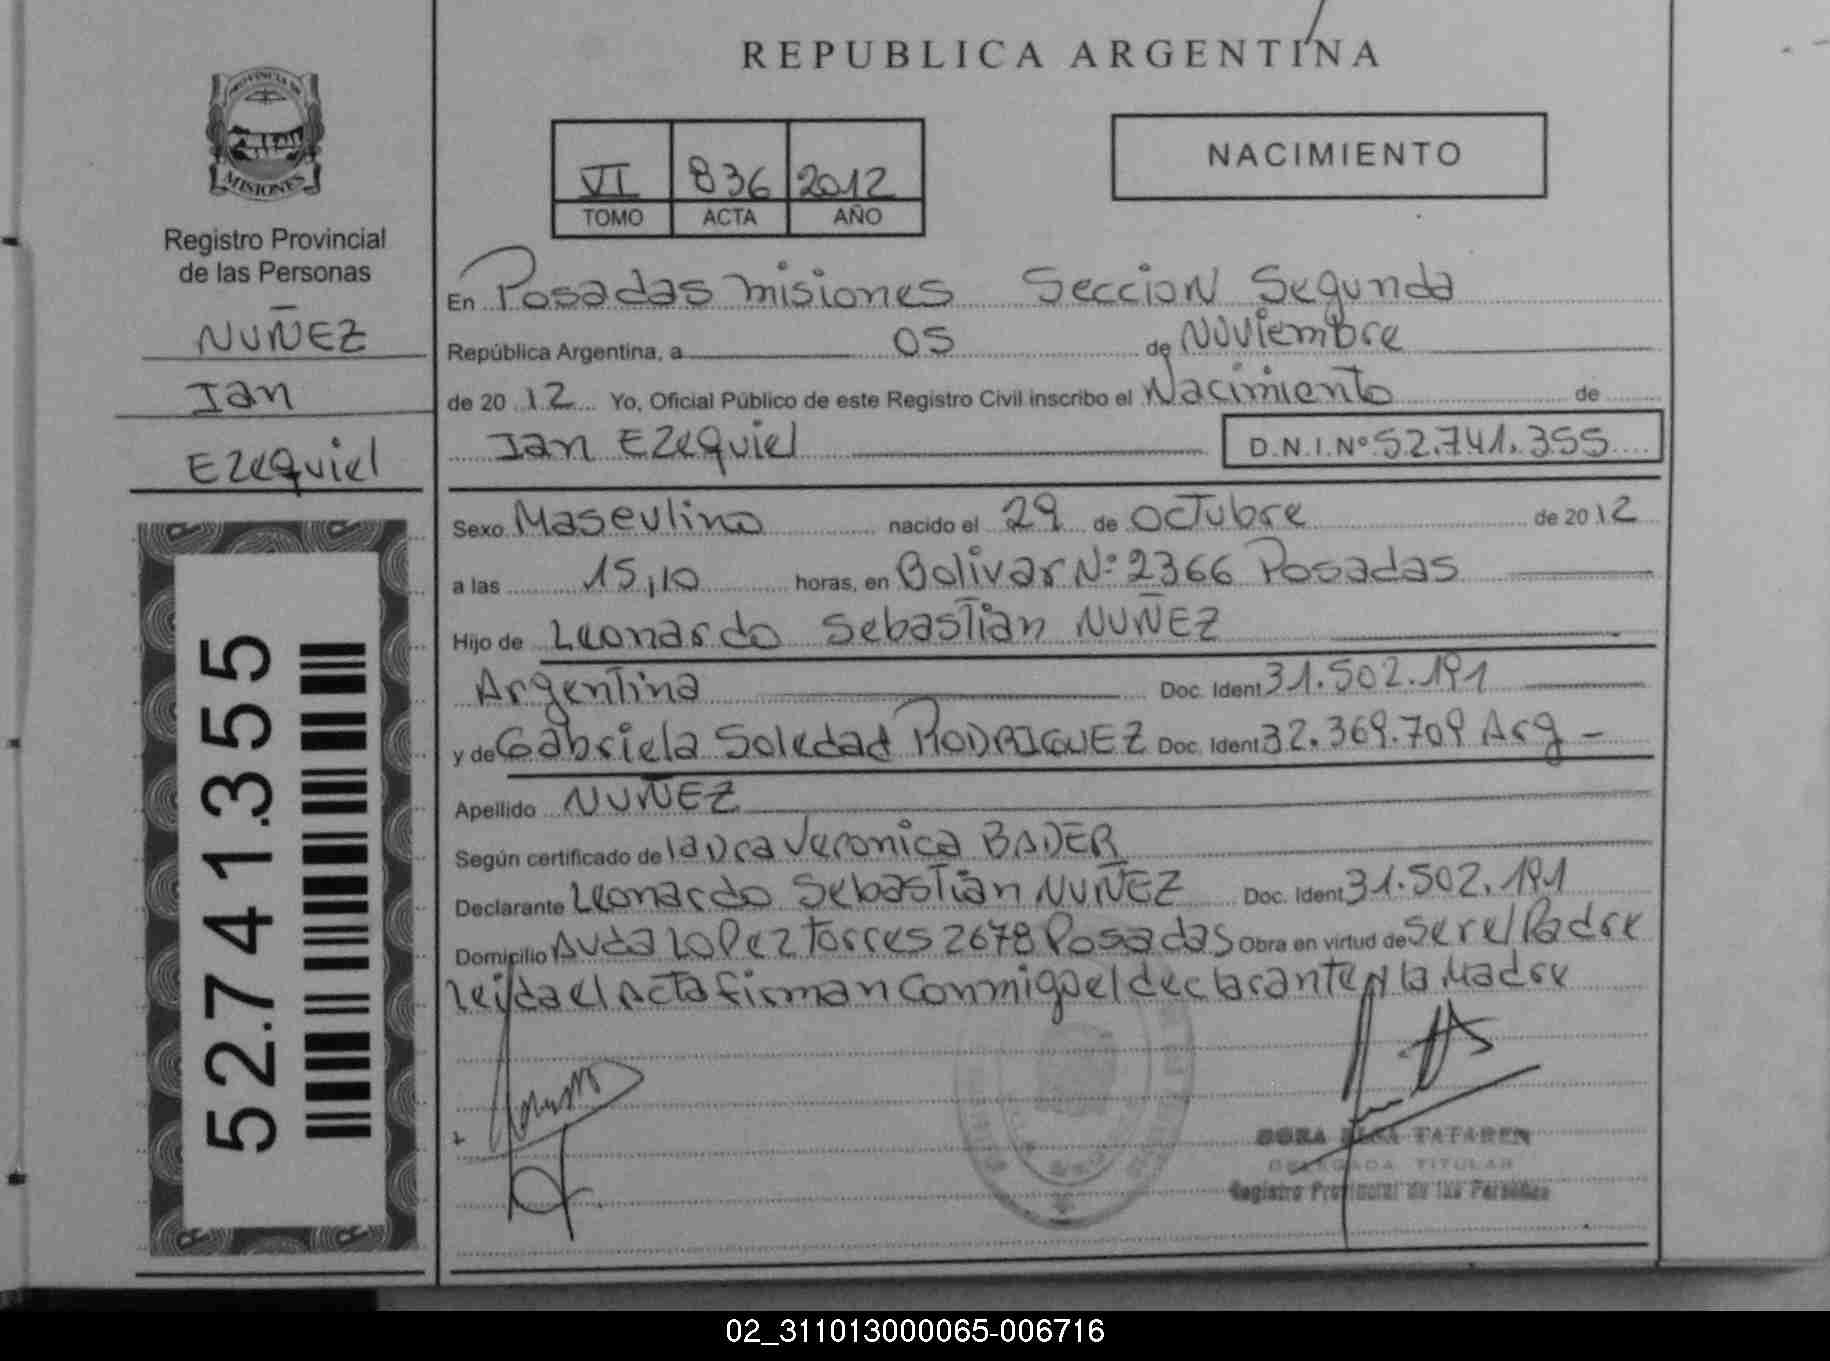 REPUBLICA ARGENTINA
PROVINCIA DE
MISIONES
Registro Provincial
de las Personas
NUÑEZ
Ian
Ezequiel
52.741.355
VI 836 2012
TOMO ACTA AÑO
NACIMIENTO
En Posadas misiones Seccion Segunda
República Argentina, a 05 de Noviembre
de 2012 Yo, Oficial Público de este Registro Civil inscribo el Nacimiento de
Ian Ezequiel D.N.I.Nº 52.741.355
Sexo Masculino nacido el 29 de Octubre de 2012
a las 15,10 horas, en Bolivar Nº 2366 Posadas
Hijo de Leonardo Sebastian NUÑEZ
Argentina Doc. Ident 31.502.191
y de Gabriela Soledad RODRIGUEZ Doc. Ident 32.369.709 Arg -
Apellido NUÑEZ
Según certificado de la Dra Veronica BADER
Declarante Leonardo Sebastian NUÑEZ Doc. Ident 31.502.191
Domicilio Avda Lopez Torres 2678 Posadas Obra en virtud de ser el Padre
Leida el Acta firman conmigo el declarante y la Madre
TATAREN
DELEGADA TITULAR
Registro Provincial de las Personas
02_311013000065-006716